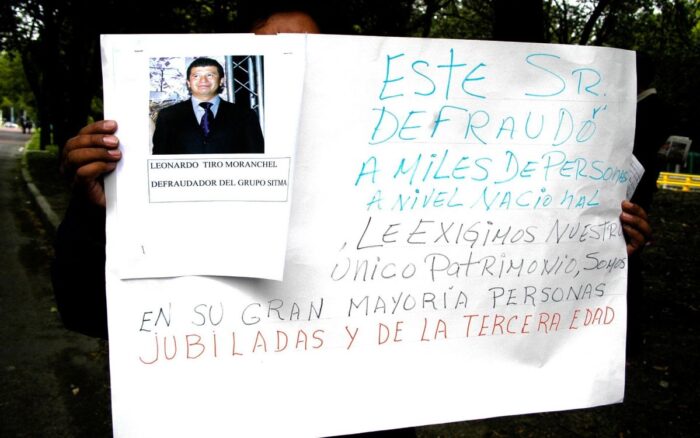 LEONARDO TIRO MORANCHEL
DEFRAUDADOR DEL GRUPO SITMA
ESTE SR.
DEFRAUDÓ
A MILES DE PERSONAS
A NIVEL NACIONAL
, LE EXIGIMOS NUESTRO
UNICO PATRIMONIO, SOMOS
EN SU GRAN MAYORÍA PERSONAS
JUBILADAS Y DE LA TERCERA EDAD